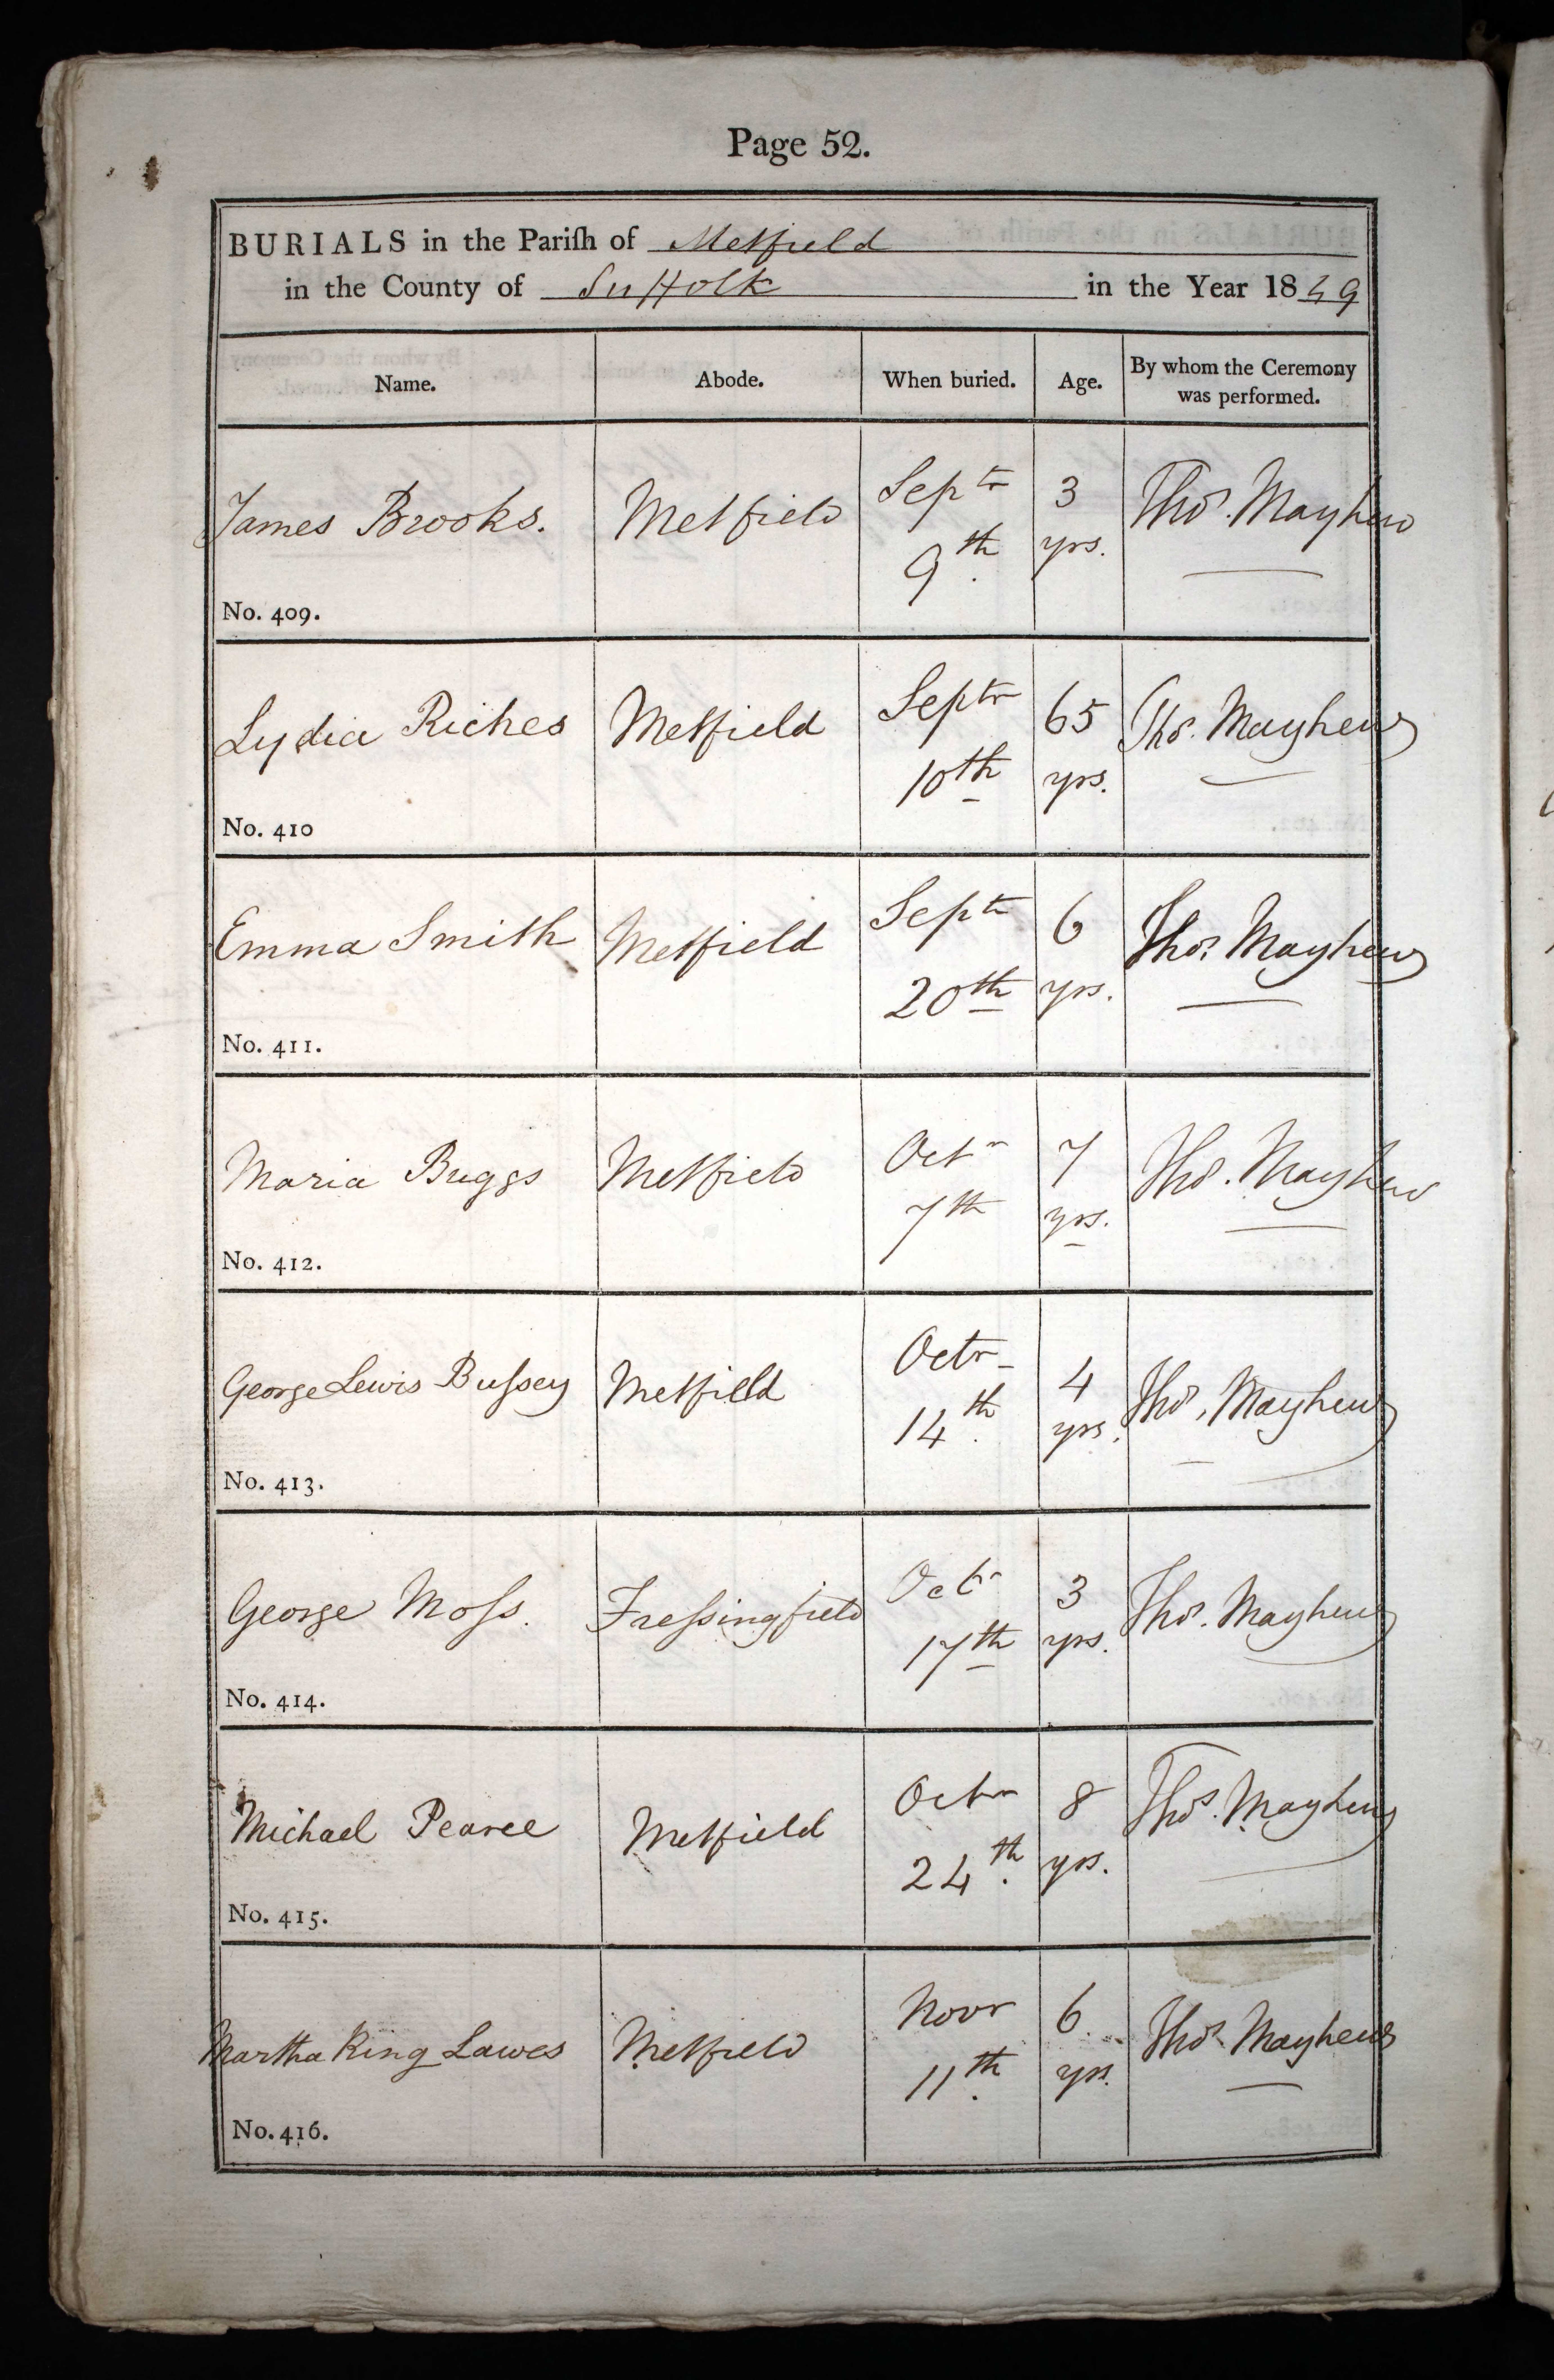 Page 52.
BURIALS in the Pariſh of Metfield
in the County of Suffolk in the Year 1839
Name. Abode. When buried. Age. By whom the Ceremony was performed.
James Brooks. Metfield Septr 9th 3 yrs. Thos. Mayhew
No. 409.
Lydia Riches Metfield Septr 10th 65 yrs. Thos. Mayhew
No. 410
Emma Smith Metfield Septr 20th 6 yrs. Thos. Mayhew
No. 411.
Maria Buggs Metfield Octr 7th 7 yrs. Thos. Mayhew
No. 412.
George Lewis Buſsey Metfield Octr 14th 4 yrs. Thos. Mayhew
No. 413.
George Moſs. Freſsingfield Octr 17th 3 yrs. Thos. Mayhew
No. 414.
Michael Pearce Metfield Octr 24th 8 yrs. Thos. Mayhew
No. 415.
Martha King Lawes Metfield Novr 11th 6 yrs. Thos. Mayhew
No. 416.